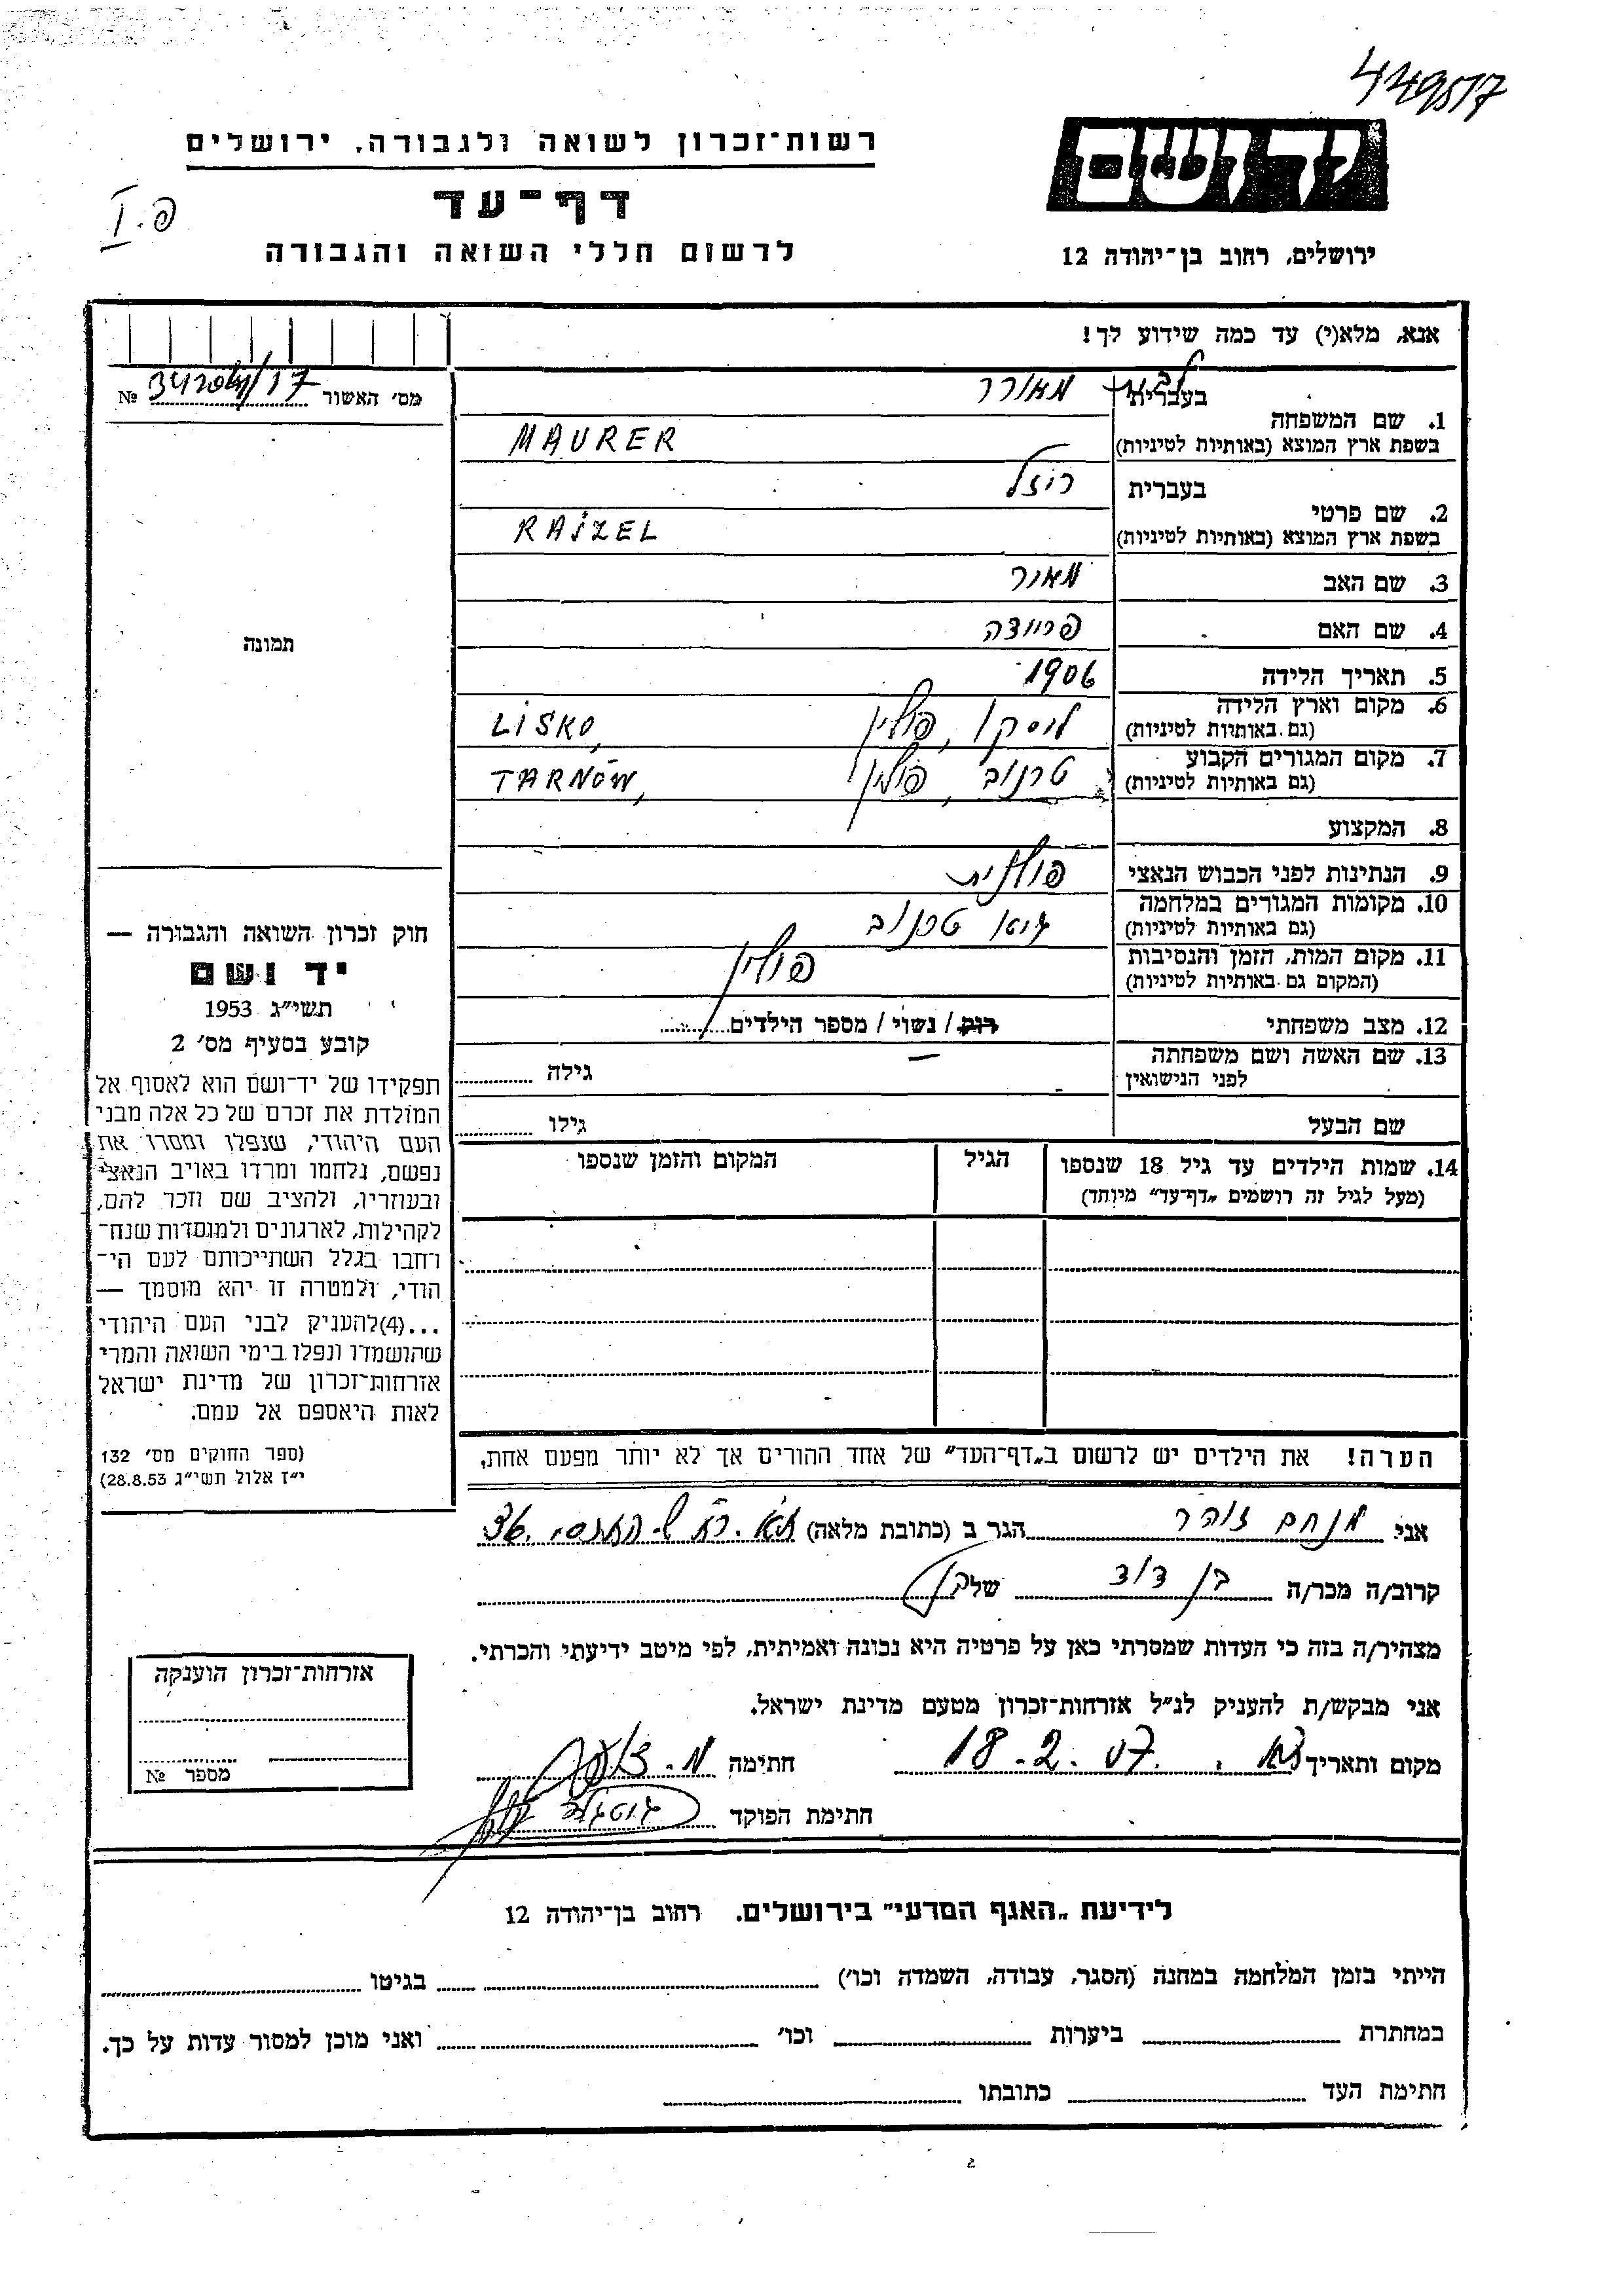 449517
רשות־זכרון לשואה ולגבורה, ירושלים
יד ושם
דף־עד
פ.I
לרשום חללי השואה והגבורה
ירושלים, רחוב בן־יהודה 12
אנא, מלא(י) עד כמה שידוע לך!
מס׳ האשור № /17
1. שם המשפחה
בעברית מאורר
בשפת ארץ המוצא (באותיות לטיניות) MAURER
2. שם פרטי
בעברית רוזל
בשפת ארץ המוצא (באותיות לטיניות) RAJZEL
3. שם האב מאור
4. שם האם
5. תאריך הלידה 1906
6. מקום וארץ הלידה
(גם באותיות לטיניות) ליסקו, פולין LISKO,
7. מקום המגורים הקבוע
(גם באותיות לטיניות) טרנוב, פולין TARNÓW,
8. המקצוע
9. הנתינות לפני הכבוש הנאצי פולנית
10. מקומות המגורים במלחמה
(גם באותיות לטיניות) גיטו טרנוב
11. מקום המות, הזמן והנסיבות
(המקום גם באותיות לטיניות) פולין
12. מצב משפחתי רוק / נשוי / מספר הילדים
13. שם האשה ושם משפחתה
לפני הנישואין — גילה
שם הבעל גילו
14. שמות הילדים עד גיל 18 שנספו
(מעל לגיל זה רושמים „דף־עד״ מיוחד)
הגיל
המקום והזמן שנספו
תמונה
חוק זכרון השואה והגבורה —
יד ושם
תשי״ג 1953
קובע בסעיף מס׳ 2
תפקידו של יד־ושם הוא לאסוף אל
המולדת את זכרם של כל אלה מבני
העם היהודי, שנפלו ומסרו את
נפשם, נלחמו ומרדו באויב הנאצי
ובעוזריו, ולהציב שם וזכר להם,
לקהילות, לארגונים ולמוסדות שנח־
רחבו בגלל השתייכותם לעם הי־
הודי, ולמטרה זו יהא מוסמך —
...(4)להעניק לבני העם היהודי
שהושמדו ונפלו בימי השואה והמרי
אזרחות־זכרון של מדינת ישראל
לאות היאספם אל עמם.
(ספר החוקים מס׳ 132
י״ז אלול תשי״ג 28.8.53)
הערה! את הילדים יש לרשום ב„דף־העד״ של אחד ההורים אך לא יותר מפעם אחת.
אני מנחם זוהר הגר ב (כתובת מלאה)
קרוב/ה מכר/ה בן דוד של
מצהיר/ה בזה כי העדות שמסרתי כאן על פרטיה היא נכונה ואמיתית, לפי מיטב ידיעתי והכרתי.
אני מבקש/ת להעניק לנ״ל אזרחות־זכרון מטעם מדינת ישראל.
מקום ותאריך 18-2- חתימה
חתימת הפוקד
אזרחות־זכרון הוענקה
מספר №
לידיעת „האגף המדעי״ בירושלים. רחוב בן־יהודה 12
הייתי בזמן המלחמה במחנה (הסגר, עבודה, השמדה וכו׳) בגיטו
במחתרת ביערות וכו׳ ואני מוכן למסור עדות על כך.
חתימת העד כתובתו